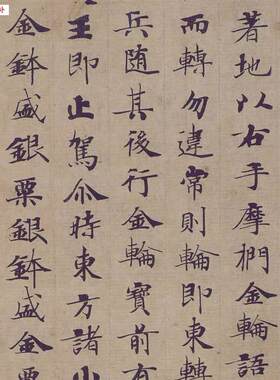 著地以右手摩捫金輪語
而轉勿違常則輪即東轉
兵随其後行金輪寶前有
王即止駕尒時東方諸小
金鉢盛銀粟銀鉢盛金粟